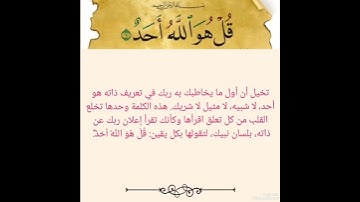 قُلْ هُوَ ٱللَّهُ أَحَدٌ
تخيل أن أول ما يخاطبك به ربك في تعريف ذاته هو
أحد، لا شبيه، لا مثيل لا شريك. هذه الكلمة وحدها تخلع
القلب من كل تعلق اقرأها وكأنك تقرأ إعلان ربك عن
ذاته، بلسان نبيك، لتقولها بكل يقين: قُلْ هُوَ اللَّهُ أَحَدٌ